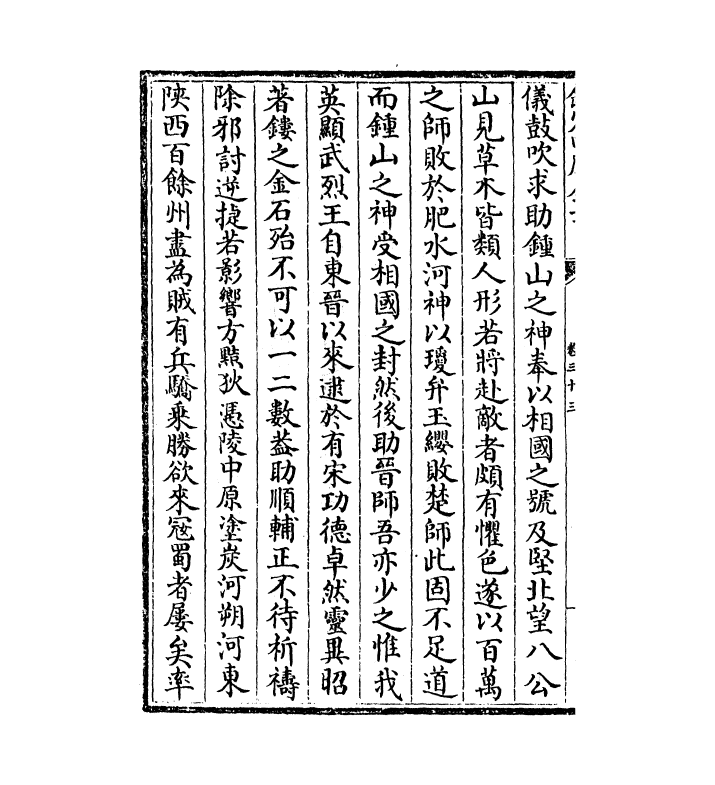 卷三十三
儀鼓吹求助鍾山之神奉以相國之號及堅北望八公
山見草木皆類人形若將赴敵者頗有懼色遂以百萬
之師敗於肥水河神以瓊弁玉纓敗楚師此固不足道
而鍾山之神受相國之封然後助晉師吾亦少之惟我
英顯武烈王自東晉以來逮於有宋功德卓然靈異昭
著鏤之金石殆不可以一二數葢助順輔正不待祈禱
除邪討逆捷若影響方點狄憑陵中原塗炭河朔河東
陜西百餘州盡為賊有兵驕乘勝欲來寇蜀者屢矣率